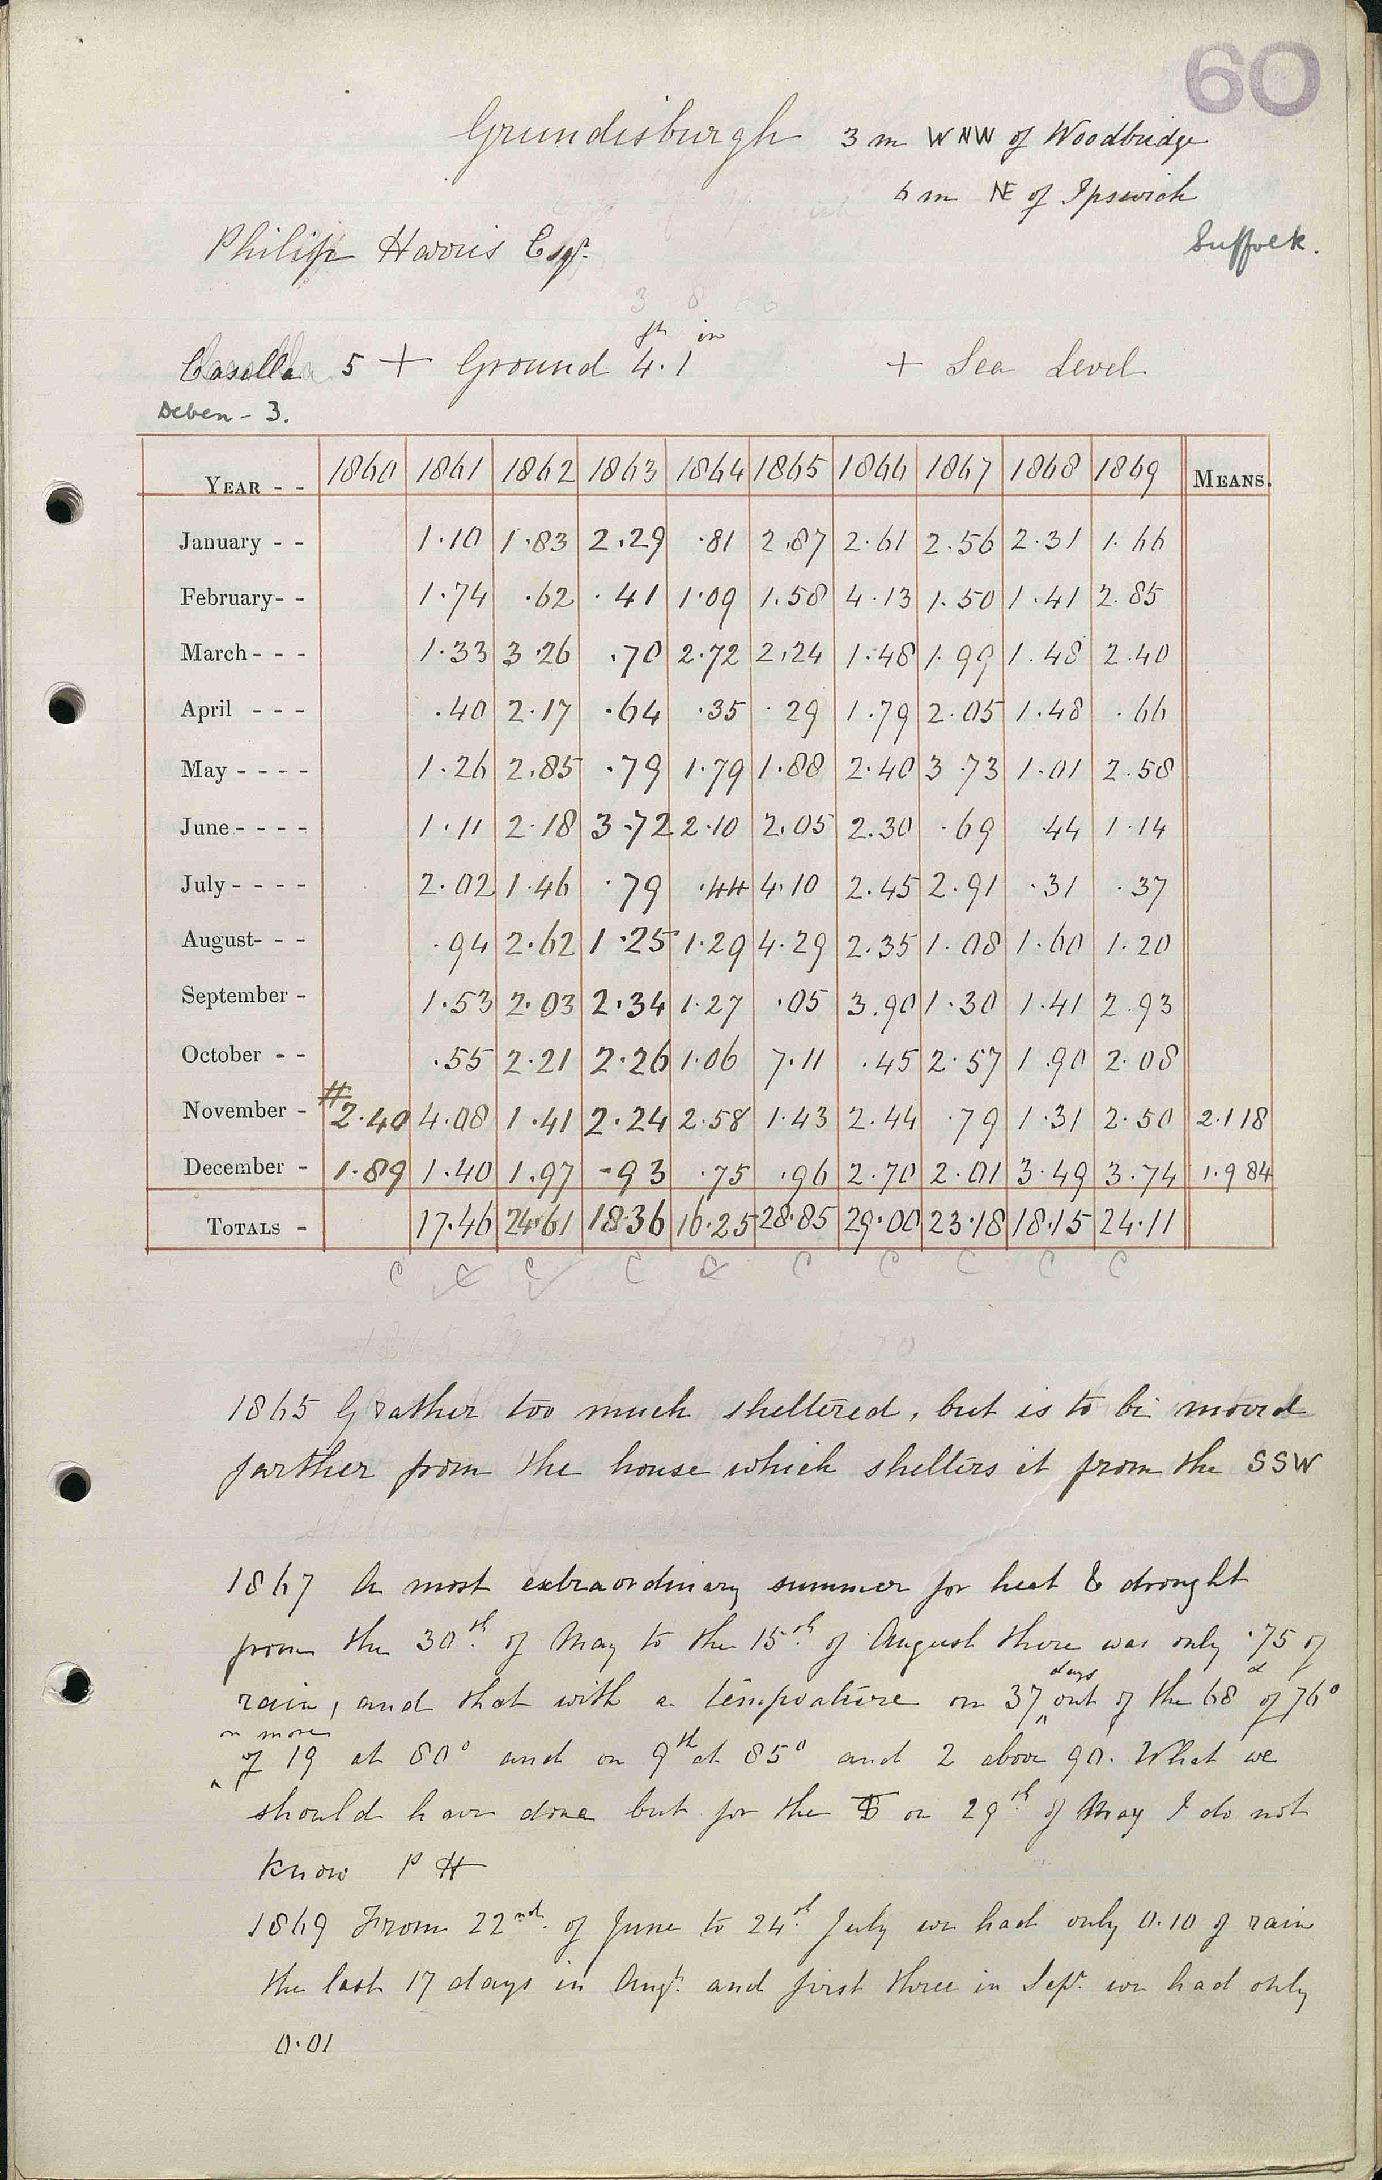 60
Grundisburgh 3 m WNW of Woodbridge
6 m NE of Ipswich
Suffolk.
Philip Harris Esqr.
ft in
Casella 5 + Ground 4.1 + Sea Level
Deben - 3.
YEAR - - 1860 1861 1862 1863 1864 1865 1866 1867 1868 1869 MEANS.
January - - 1.10 1.83 2.29 .81 2.87 2.61 2.56 2.31 1.66
February - - 1.74 .62 .41 1.09 1.58 4.13 1.50 1.41 2.85
March - - - 1.33 3.26 .70 2.72 2.24 1.48 1.99 1.48 2.40
April - - - .40 2.17 .64 .35 .29 1.79 2.05 1.48 .66
May - - - - 1.26 2.85 .79 1.79 1.88 2.40 3.73 1.01 2.58
June - - - - 1.11 2.18 3.72 2.10 2.05 2.30 .69 .44 1.14
July - - - - 2.02 1.46 .79 .44 4.10 2.45 2.91 .31 .37
August - - - .94 2.62 1.25 1.29 4.29 2.35 1.08 1.60 1.20
September - 1.53 2.03 2.34 1.27 .05 3.90 1.30 1.41 2.93
October - - .55 2.21 2.26 1.06 7.11 .45 2.57 1.90 2.08
November - # 2.40 4.08 1.41 2.24 2.58 1.43 2.44 .79 1.31 2.50 2.118
December - 1.89 1.40 1.97 .93 .75 .96 2.70 2.01 3.49 3.74 1.984
TOTALS - 17.46 24.61 18.36 16.25 28.85 29.00 23.18 18.15 24.11
C C C C C C C C C C
1865 G rather too much sheltered, but is to be moved
farther from the house which shelters it from the SSW
1867 A most extraordinary summer for heat & drought
from the 30th of May to the 15th of August there was only .75 of
rain, and that with a temperature on 37 days out of the 68 of 76°
or more of 19 at 80° and on 9th at 85° and 2 above 90. What we
should have done but for the on 29th of May I do not
know P H
1869 From 22nd of June to 24th July we had only 0.10 of rain
the last 17 days in Augt. and first three in Sept. we had only
0.01